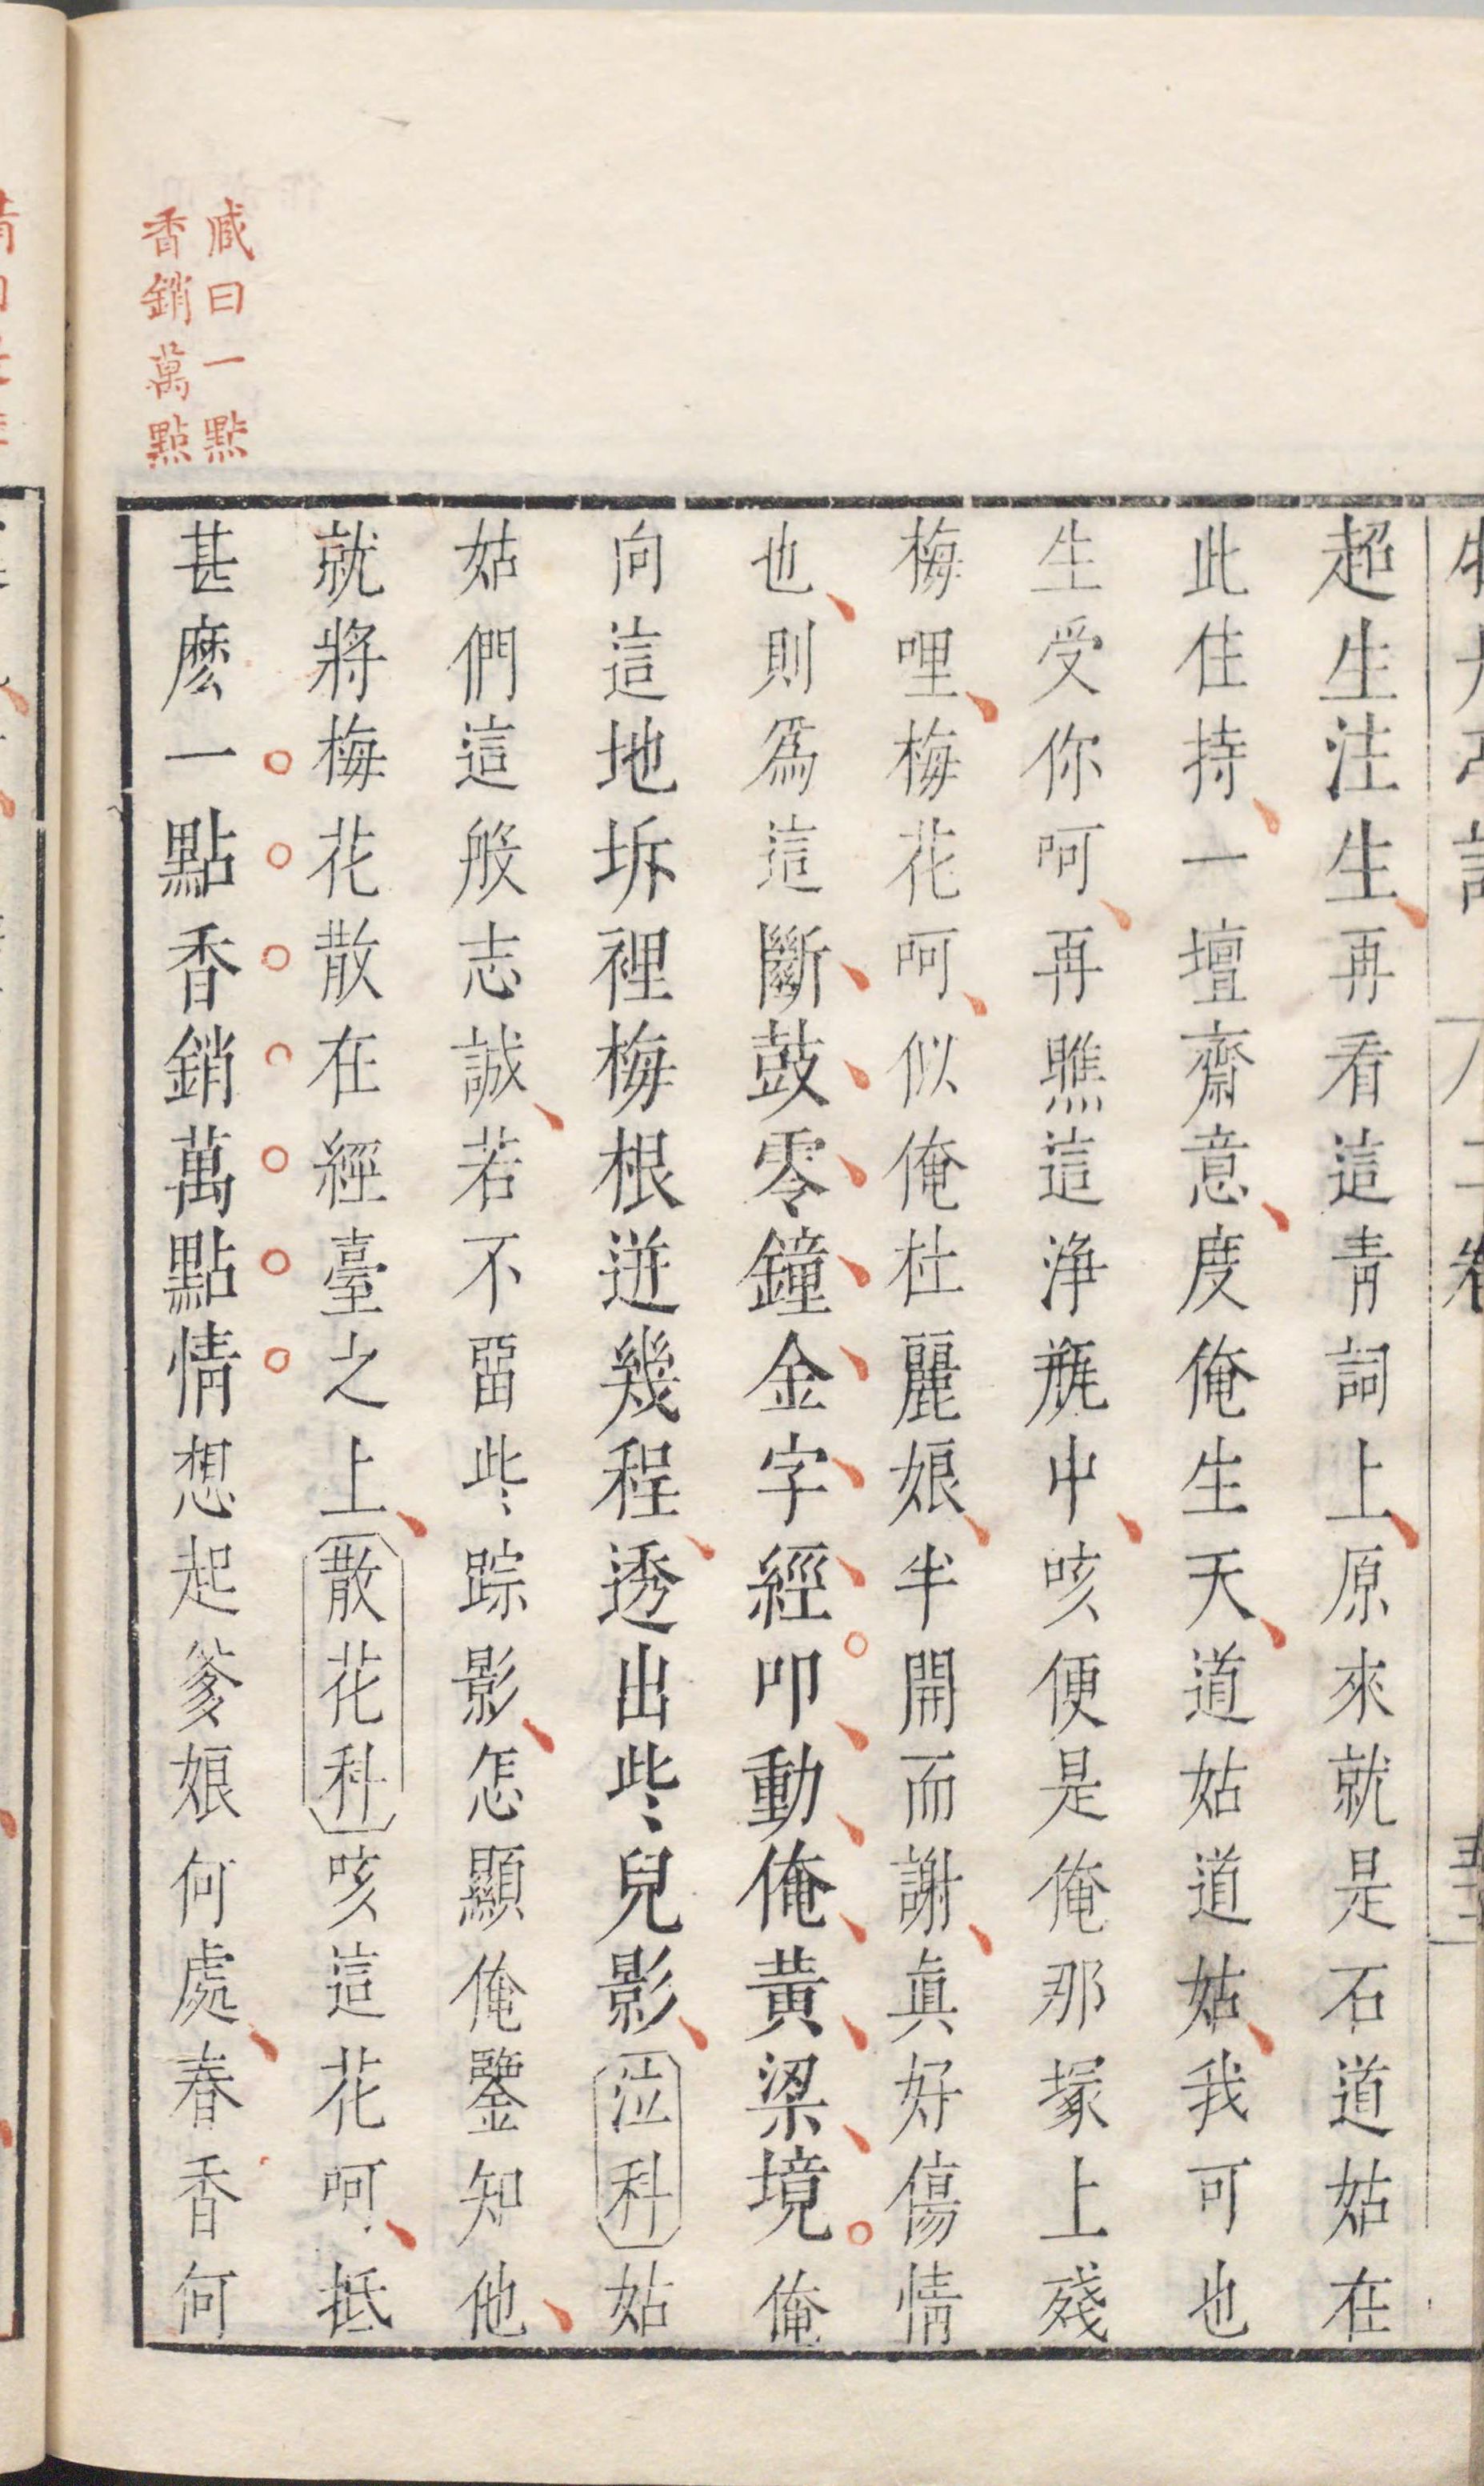 超生注生再看這青詞上原來就是石道姑在
此住持一壇齋意度俺生天道姑道姑我可也
生受你呵再瞧這淨瓶中咳便是俺那塚上殘
梅哩梅花呵似俺杜麗娘半開而謝眞好傷情
也則爲這斷鼓零鐘金字經叩動俺黃粱境俺
向這地坼裡梅根迸幾程透出些兒影泣科姑
姑們這般志誠若不畱些踪影怎顯俺鑒知他
就將梅花散在經臺之上散花科咳這花呵抵
甚麼一點香銷萬點情想起爹娘何處春香何
臧曰一點
香銷萬點